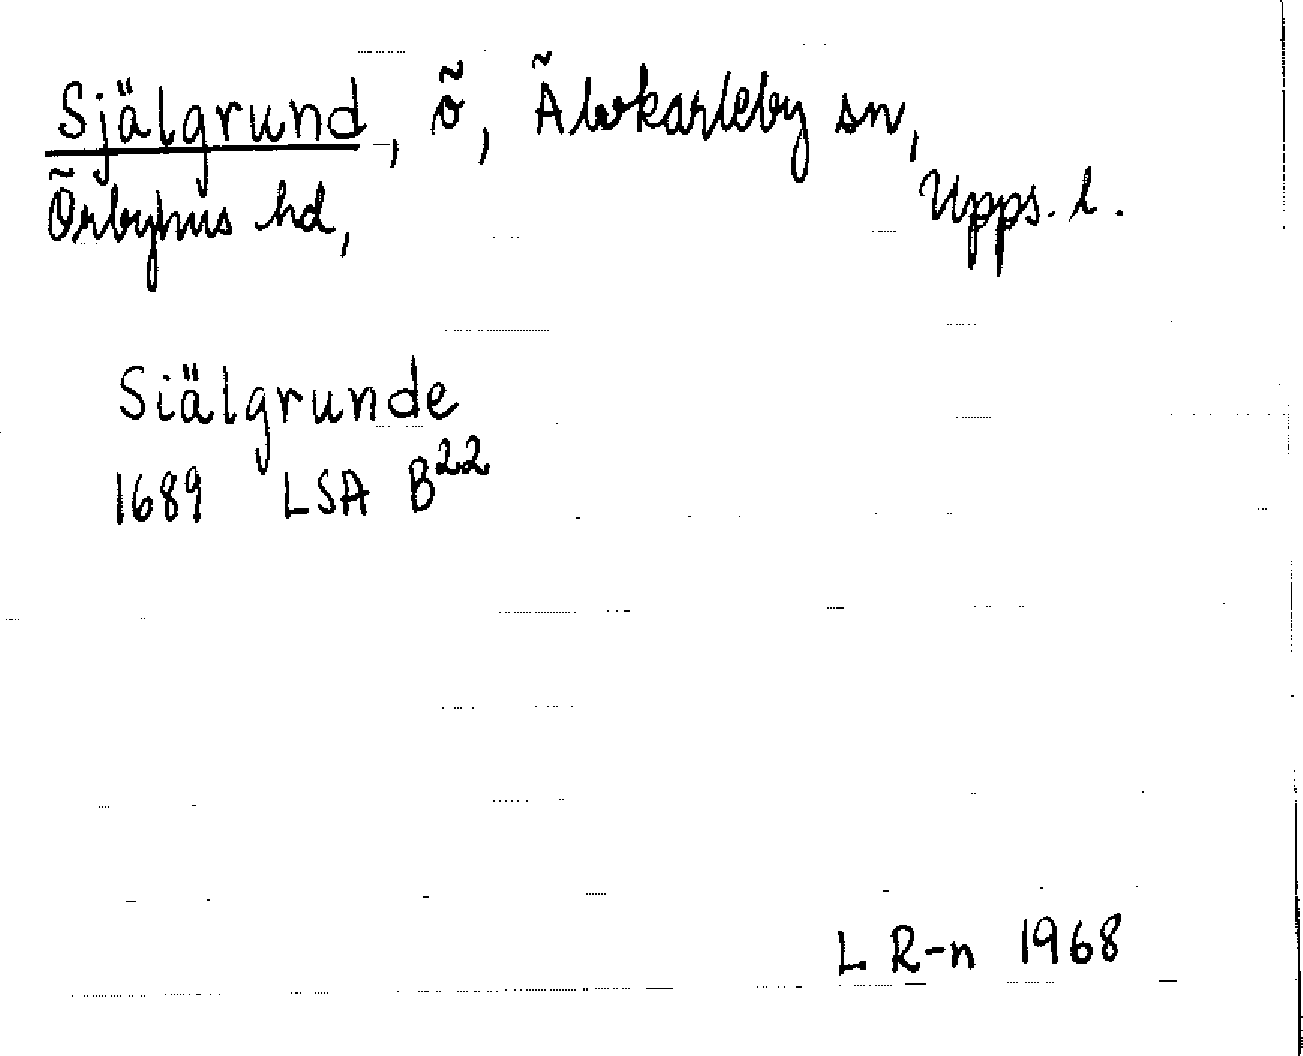 Själgrund, ö, Älvkarleby sn,
Örbyhus hd, Upps. l.
Siälgrunde
1689 LSA B22
L R-n 1968